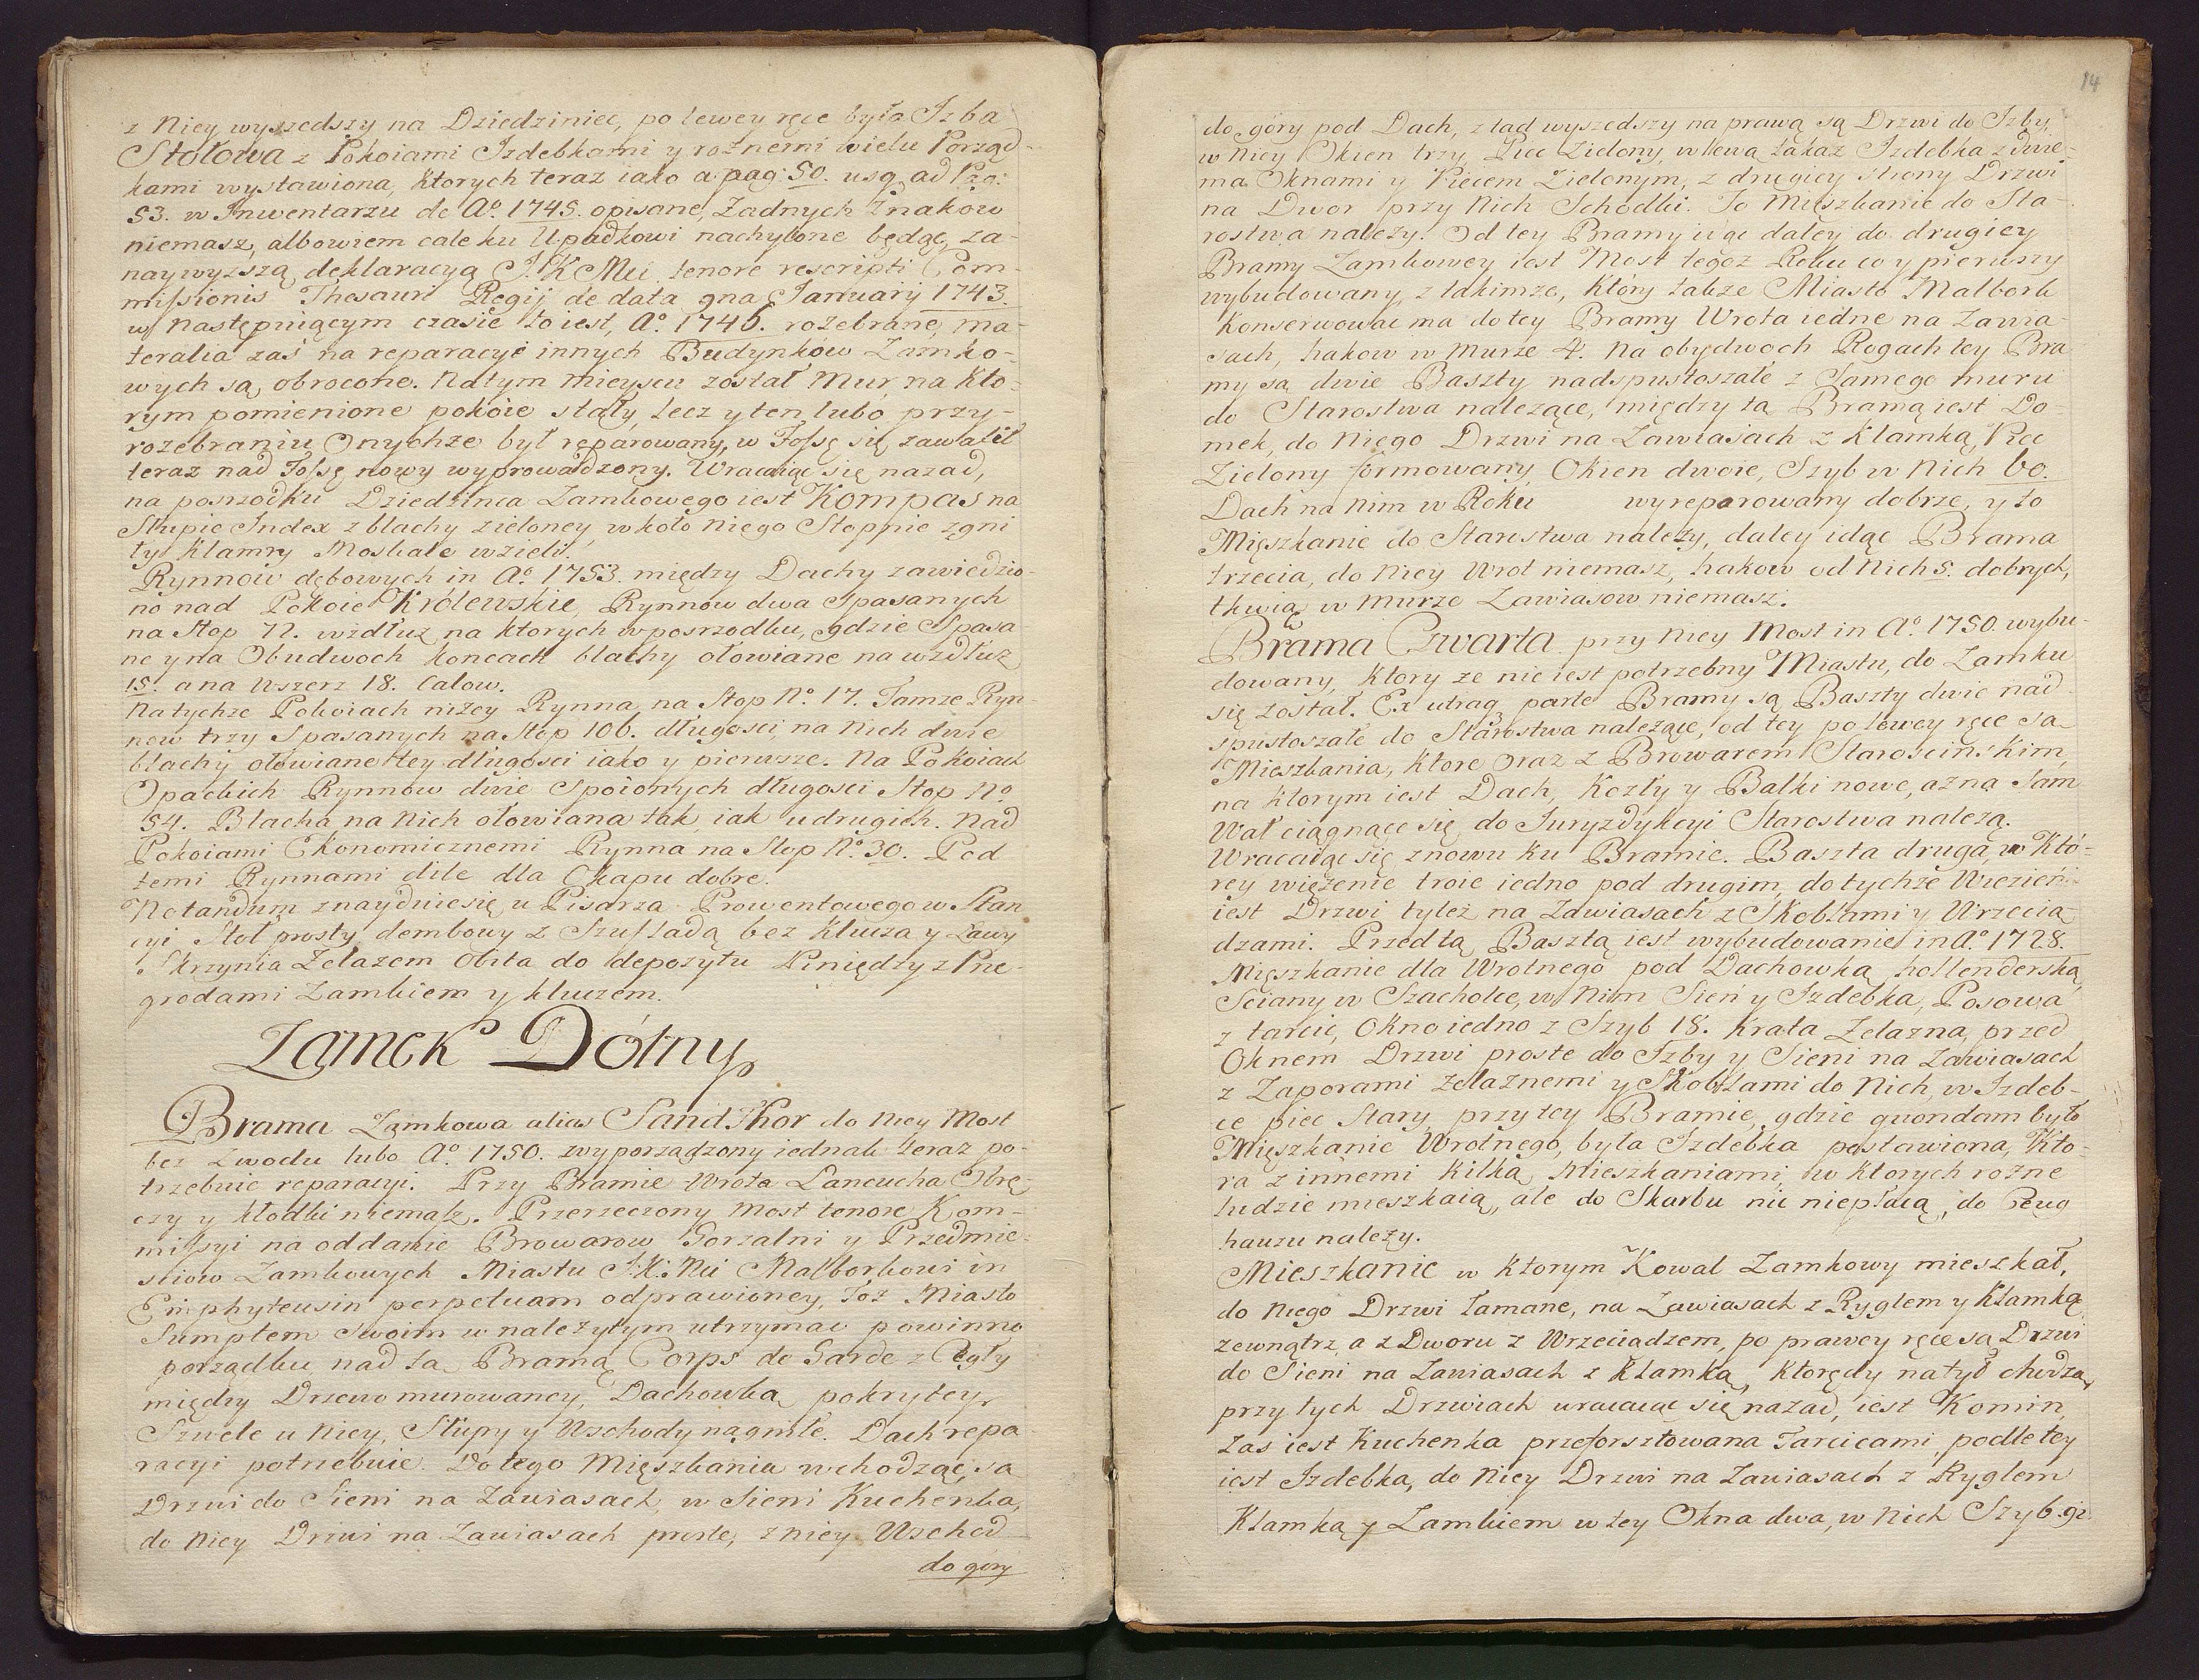 z Niey wyszedszy na Dziedziniec, po lewey ręce była Izba
Stołowa z Pokoiami Izdebkami y rożnemi wielu Porząd-
kami wystawiona, ktorych teraz iako a pag: 50. usq. ad Pag:
53. w Inwentarzu de Aº. 1745. opisane, Żadnych Znakow
niemasz, albowiem cale ku Upadkowi nachylone będąc, za
naywyższą deklaracyą J. K Mci tenore rescripti Com-
missionis Thesauri Regij de data 9na Januarij 1743.
w następuiącym czasie to iest, Aº. 1746. rozebrane, ma-
teralia zaś na reparacye innych Budynkow Zamko-
wych są obrocone. Na tym mieyscu został Mur, na kto-
rym pomienione pokoie stały, lecz y ten lubo przy-
rozebraniu Onychże był reparowany, w Fossę się zawalił
teraz nad Fossę nowy wyprowadzony. Wracaiąc się nazad,
na poszrodku Dziedzinca Zamkowego iest Kompas na
Słupie Index z blachy zieloney, w koło niego Stopnie zgni
ły Klamry Moskale wzieli.
Rynnow dębowych in Aº. 1753. między Dachy zawiedzio-
no nad Pokoie Krolewskie, Rynnow dwa Spasanych
na Stop 72. wzdłuż na ktorych w poszrodku, gdzie Spasa
ne y na Obudwoch koncach blachy ołowiane na wzdłuż
15. a na wszerz 18. Calow.
Na tychże Pokoiach niżey Rynna na Stop Nº. 17. Tamże Ryn-
now trzy Spasanych na Stop 106. długosci, na Nich dwie
blachy ołowiane tey długosci iako y pierwsze. Na Pokoiach
Opackich Rynnow dwie Spoionych długosci Stop Nº
54. Blacha na Nich ołowiana tak, iak u drugich. Nad
Pokoiami Ekonomicznemi Rynna na Stop Nº. 30. Pod
temi Rynnami dile dla Okapu dobre.
Notandum znayduie się u Pisarza Prowentowego w Stan
cyi Stoł prosty dembowy z Szufladą bez Klucza y Ławy
Skrzynia Żelazem Obita do depozytu Piniędzy z Prze-
grodami Zamkiem y kluczem.
Zamek Dólny
Brama Zamkowa alias Sand Thor do Niey Most
bez Zwodu lubo Aº. 1750. wyporządzony iednak teraz po-
trzebuie reparacyi. Przy Bramie Wrota Lancucha Obrę-
czy y kłodki niemasz. Przerzeczony Most tenore Kom-
missyi na oddanie Browarow Gorzalni y Przedmie-
sciow Zamkowych Miastu J: K: Mci Malborkowi in
Emphyteusin perpetuam odprawioney, toż Miasto
Sumptem swoim w należytym utrzymac powinno
porządku nad tą Bramą Corps de Garde z Cegły
między Drzewo murowaney, Dachowką pokrytey,
Szwele u Niey, Słupy y Wschody nagniłe. Dach repa
racyi potrzebuie. Do tego Mięszkania wchodząc, są
Drzwi do Sieni na Zawiasach, w Sieni Kuchenka,
do Niey Drzwi na Zawiasach proste, z niey Wschod
do gory
14
do góry pod Dach, z tąd wyszedszy na prawą są Drzwi do Izby,
w Niey Okien trzy Piec Zielony, w lewą takaż Izdebka z dwie-
ma Oknami y Piecem Zielonym, z drugiey strony Drzwi
na Dwor przy Nich Schodki. To Mięszkanie do Sta-
rostwa należy. Od tey Bramy idąc daley do drugiey
Bramy Zamkowey iest Most tegoż Roku co y pierwszy
wybudowany, z takimże, Który także Miasto Malbork
Konserwować ma do tey Bramy Wrota iedne na Zawia-
sach, hakow w Murze 4. na obydwoch Rogach tey Bra
my są dwie Baszty nadspustoszałe z Samego muru
do Starostwa należące, między tą Bramą iest Do-
mek, do Niego Drzwi na Zawiasach z Klamką, Piec
Zielony formowany, Okien dwoie, Szyb w Nich 60.
Dach na nim w Roku wyreparowany dobrze, y to
Mięszkanie do Starostwa należy, daley idąc Brama
trzecia, do Niey Wrot niemasz, hakow od Nich 5. dobrych,
tkwią w Murze Zawiasow niemasz.
Brama Czwarta przy Niey Most in Aº. 1750. wybu-
dowany, Ktory że nie iest potrzebny Miastu, do Zamku
się został. Ex utraq parte Bramy są Baszty dwie nad
spustoszałe do Starostwa należące, od tey po lewey ręce są
Mieszkania, Ktore oraz z Browarem Staroscinskim,
na ktorym iest Dach, Kozły y Balki nowe, aż na Sam
Wał ciągnące się, do Juryzdykcyi Starostwa należą.
Wracaiąc się znowu ku Bramie. Baszta druga, w Któ-
rey więzenie troie iedno pod drugim, do tychże Wiezieni
iest Drzwi tyleż na Zawiasach z Skoblami y Wrzecią-
dzami. Przed tą Basztą iest wybudowanie in Aº. 1728.
Mięszkanie dla Wrotnego pod Dachowką hollenderską,
Sciany w Szacholce, w Nim Sień y Izdebka, Posowa
z tarcic, Okno iedno z Szyb 18. Krata Żelazna, przed
Oknem Drzwi proste do Izby y Sieni na Zawiasach
z Zaporami żelaznemi y Skoblami do Nich, w Izdeb-
ce piec Stary, przy tey Bramie, gdzie quondam było
Mięszkanie Wrotnego, była Izdebka postawiona, Kto-
ra z innemi kilką Mieszkaniami, w Ktorych rożne
ludzie mieszkaią, ale do Skarbu nic niepłacą, do Ceug
hauzu należy.
Mieszkanie w Ktorym Kowal Zamkowy mieszkał,
do Niego Drzwi łamane, na Zawiasach z Ryglem y Klamką
zewnątrz, a z Dworu z Wrzeciądzem, po prawey ręce są Drzwi
do Sieni na Zawiasach z Klamką, Ktorędy na tył chodzą,
przy tych Drzwiach wracaiąc się nazad, iest Komin,
Zas iest Kuchenka przeforsztowana Tarcicami, podle tey
iest Izdebka, do Niey Drzwi na Zawiasach z Ryglem
Klamką y Zamkiem w tey Okna dwa, w Nich Szyb. 92.